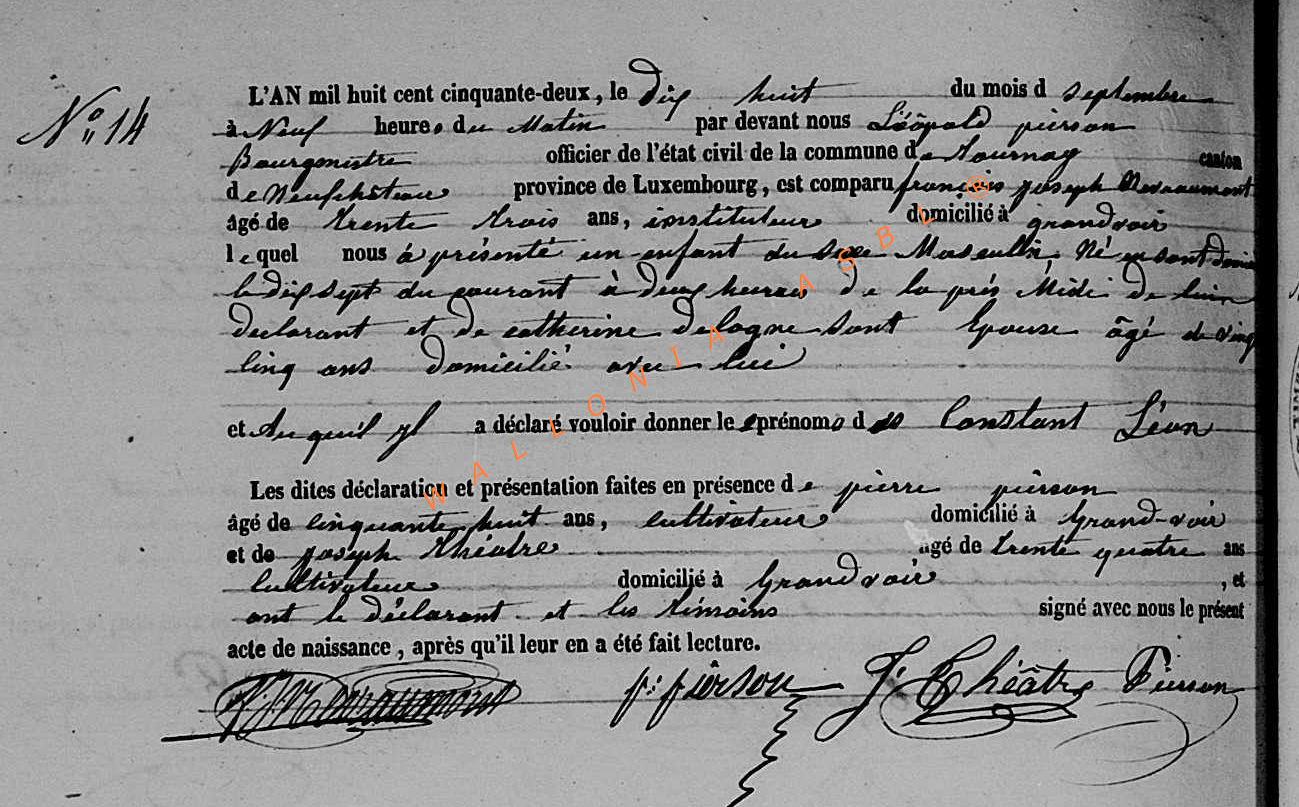 N° 14
L'AN mil huit cent cinquante-deux, le dix huit du mois d septembre
à Neuf heures du Matin par devant nous Léopold pierson
Bourgmistre officier de l'état civil de la commune de Tournay canton
de Neufchâteau province de Luxembourg, est comparu françois joseph
âgé de trente trois ans, instituteur domicilié à grandvoir
lequel nous á présenté un enfant du sexe Masculin Né en sont
le dix sept du courant à deux heures de la prés Midi de luin
declarant et de catherine delogne sont Epouse âgé de vingt
cinq ans domicilié avec lui
et auquil yl a déclaré vouloir donner les prénoms des Constant Léon
Les dites déclaration et présentation faites en présence de pierre pierson
âgé de cinquante huit ans, cultivateur domicilié à Grand-voir
et de joseph théatre agé de trente quatre ans
Cultivateur domicilié à Grandvoir, et
ont le déclarant et les témoins signé avec nous le présent
acte de naissance, après qu'il leur en a été fait lecture.
p: pierson J. Théâtre Pierson
WALLONIA ASBL ®